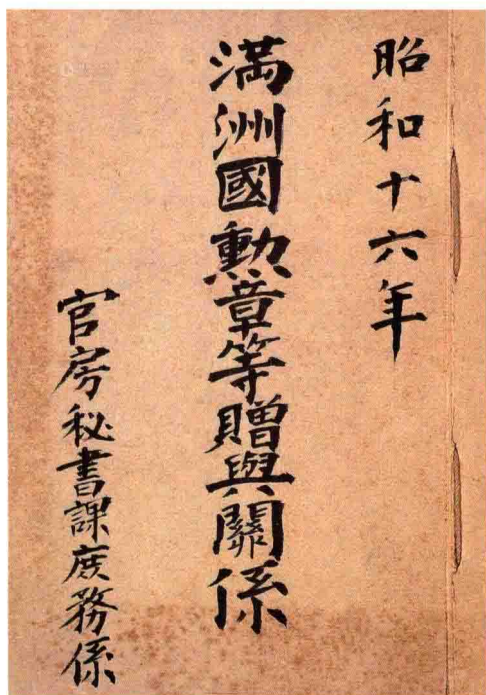 昭和十六年
満洲國勲章等贈與關係
官房秘書課庶務係